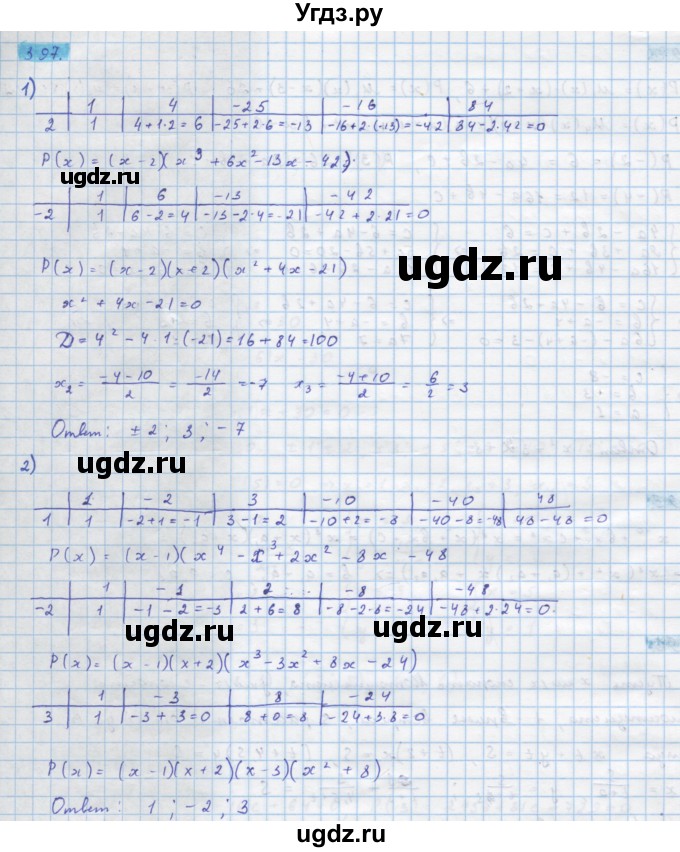 Угдз.ру
3.97.
1)
1 | 4 | -25 | -16 | 84
2 | 1 | 4+1·2=6 | -25+2·6=-13 | -16+2·(-13)=-42 | 84-2·42=0
P(x) = (x-2)(x³+6x²-13x-42)
ugdz.ru
1 | 6 | -13 | -42
-2 | 1 | 6-2=4 | -13-2·4=-21 | -42+2·21=0
P(x) = (x-2)(x+2)(x²+4x-21)
ugdz.ru
x²+4x-21=0
D=4²-4·1·(-21)=16+84=100
x₂ = (-4-10)/2 = -14/2 = -7   x₃ = (-4+10)/2 = 6/2 = 3
Ответ: ±2; 3; -7
ugdz.ru
2)
1 | -2 | 3 | -10 | -40 | 48
1 | 1 | -2+1=-1 | 3-1=2 | -10+2=-8 | -40-8=-48 | 48-48=0
P(x) = (x-1)(x⁴-x³+2x²-8x-48
1 | -1 | 2 | -8 | -48
-2 | 1 | -1-2=-3 | 2+6=8 | -8-2·8=-24 | -48+2·24=0
ugdz.ru
P(x) = (x-1)(x+2)(x³-3x²+8x-24)
1 | -3 | 8 | -24
3 | 1 | -3+3=0 | 8+0=8 | -24+3·8=0
P(x) = (x-1)(x+2)(x-3)(x²+8)
Ответ: 1; -2; 3
ugdz.ru
ugdz.ru